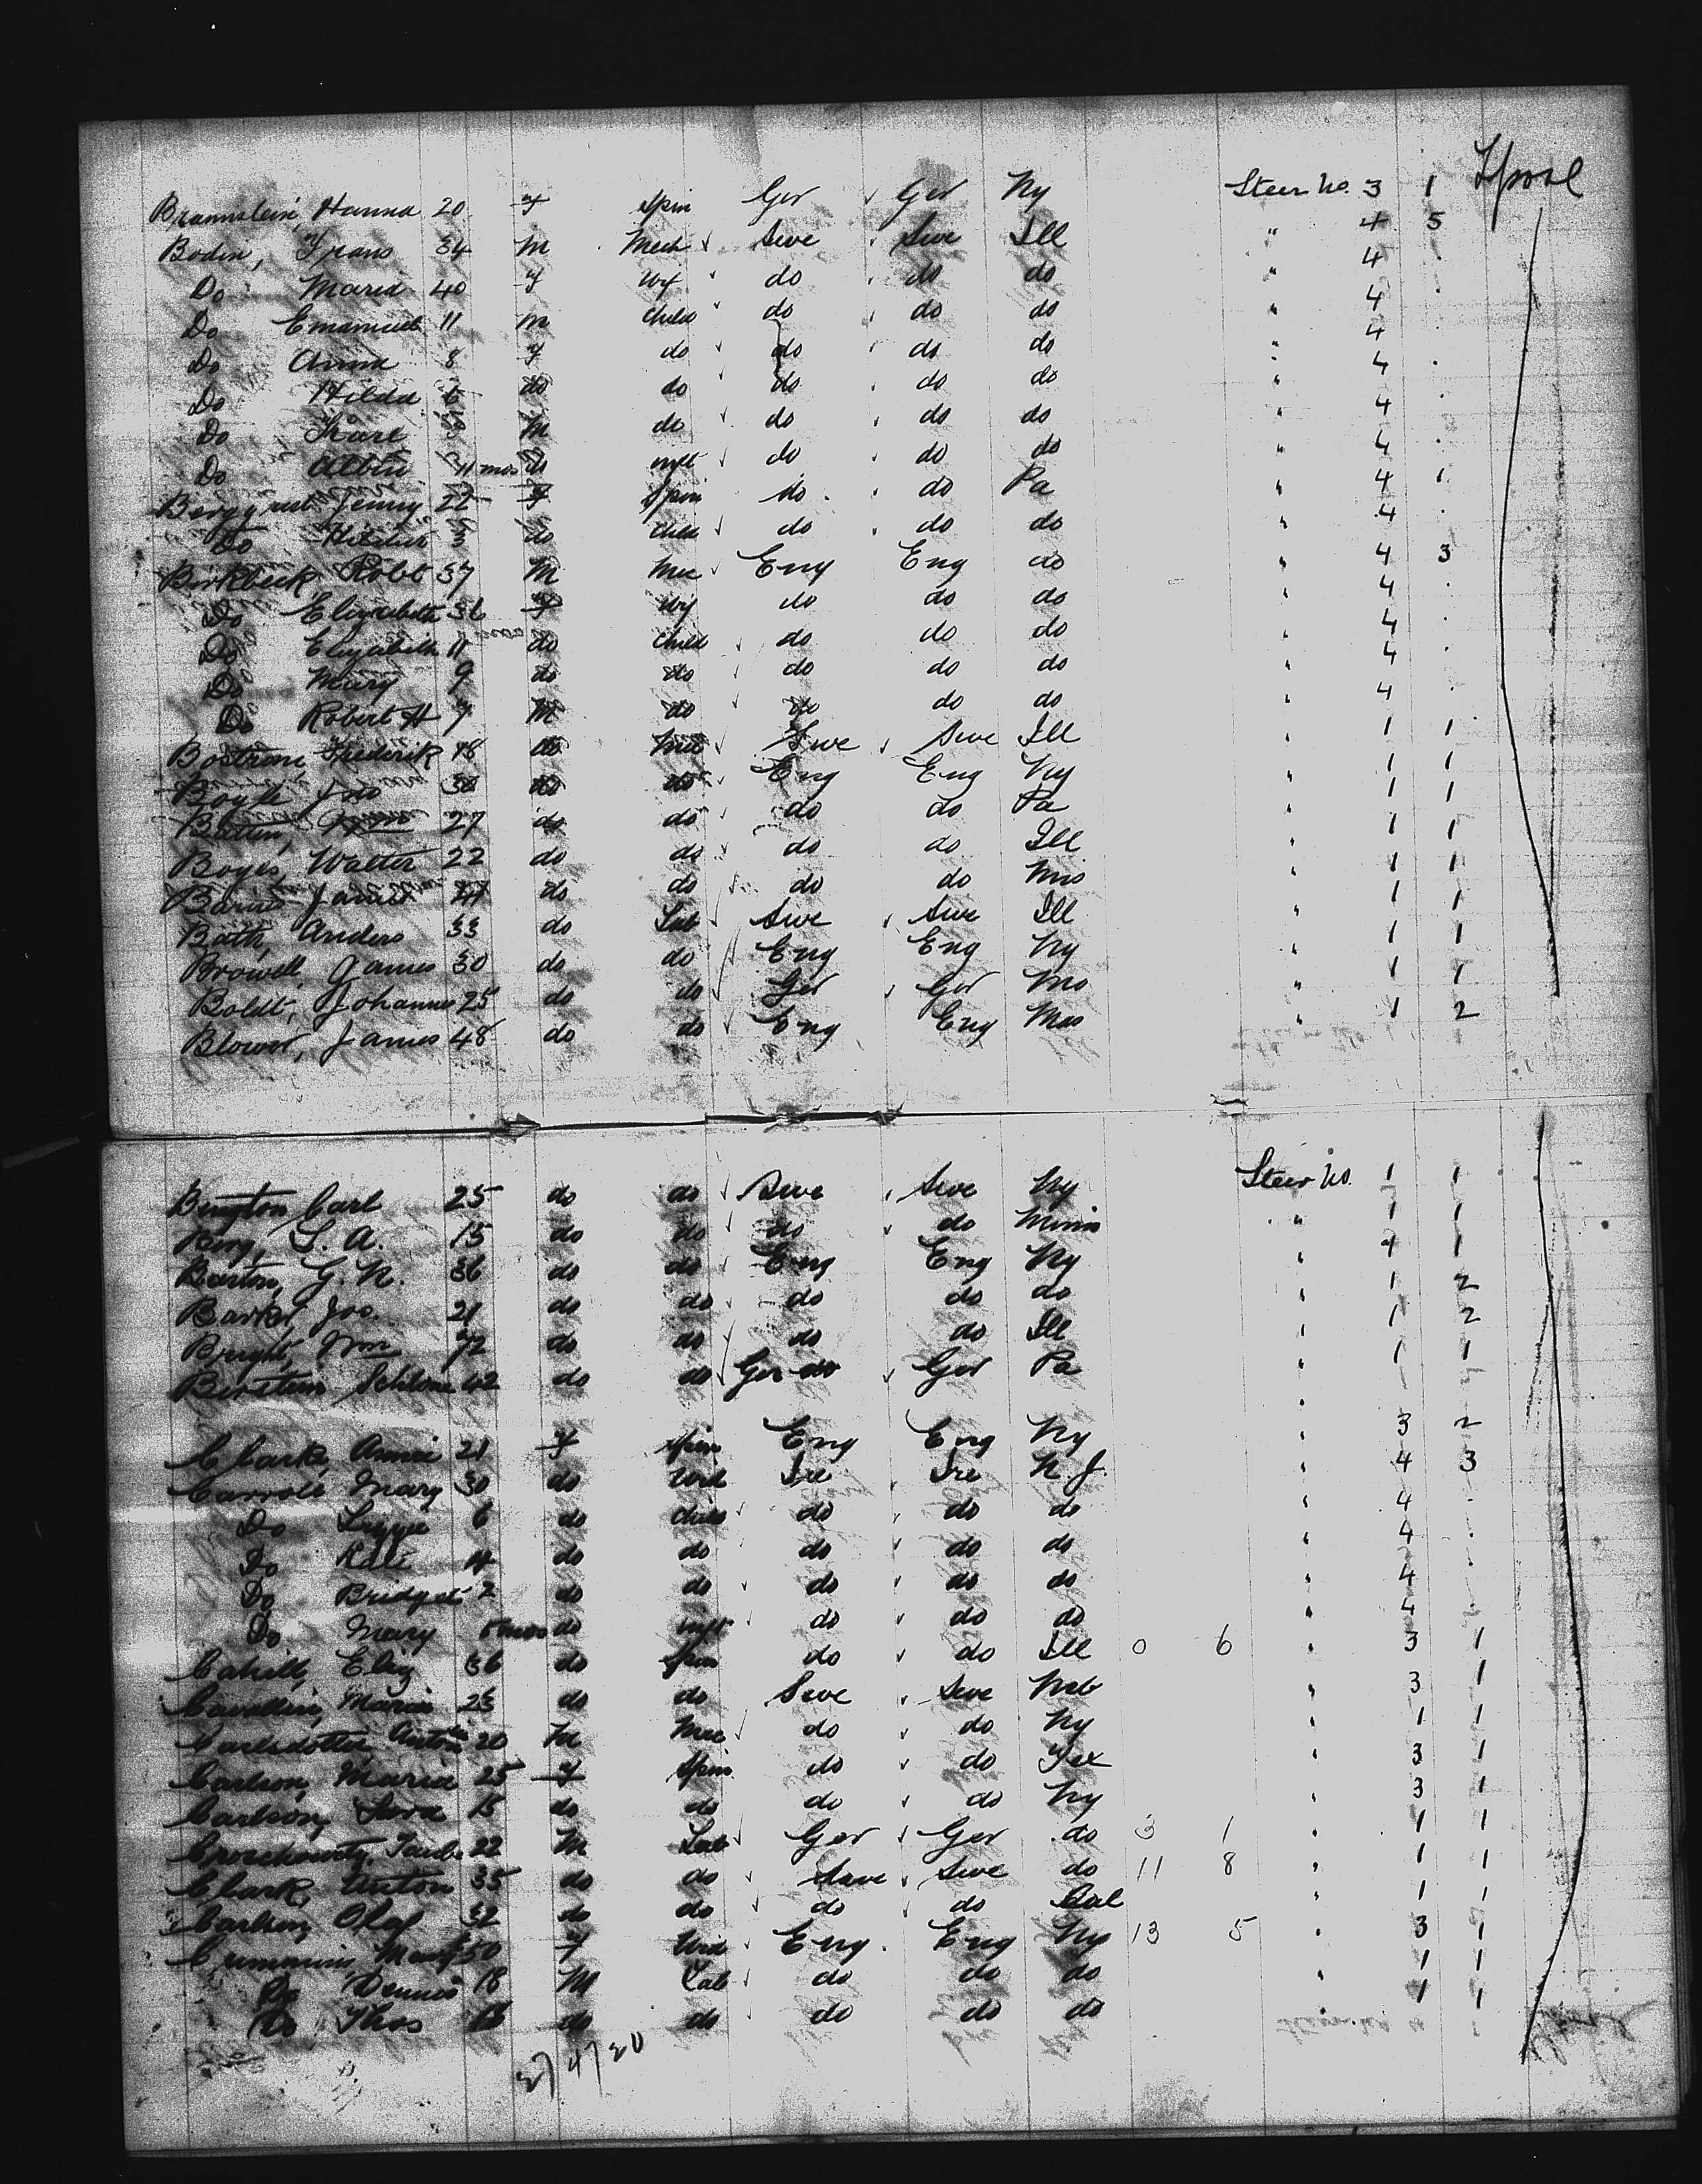 Lpool
Hanna 20 f Spin Ger Ger Ny Steer No. 3 1
Bodin, Frans 34 M Mech Swe Swe Ill " 4 5
Do Maria 40 f Wf do do do " 4
Do Emanuel 11 m Child do do do " 4
Do Anna 8 f do do do do " 4
Do Hilda 6 do do do do do " 4
Do Karl M do do do do " 4
Do Albin 11 mos do inft do do do " 4
Jenny 22 f Spin do do Pa " 4 1
Do 3 do Child do do do " 4
Birkbeck, Robt 37 M Mec Eng Eng do " 4 3
Do Elizabeth 36 f Wf do do do " 4
Do Elizabeth 11 do Child do do do " 4
Do Mary 9 do do do do do " 4
Do Robert H 7 M do do do do " 4
Bostrom Frederik 18 do Mec Swe Swe Ill " 1 1
Boyle Jno do do Eng Eng Ny " 1 1
27 do do do do Pa " 1 1
Boyes, Walter 22 do do do do Ill " 1 1
do do do do Mis " 1 1
Bath, Anders 33 do Lab Swe Swe Ill " 1 1
Browell, James 30 do do Eng Eng Ny " 1 1
Boldt, Johannes 25 do do Ger Ger Mo " 1 1
Blower, James 48 do do Eng Eng Mas " 1 2
Carl 25 do do Swe Swe Ny Steer No. 1 1
Berg, S. A. 15 do do do do Minn " 1 1
Barton, G. N. 36 do do Eng Eng Ny " 1 1
Barker, Jos. 21 do do do do do " 1 2
Bright, Wm 72 do do do do Ill " 1 2
42 do do Ger do Ger Pa " 1 1
Clark, Annie 21 f Spin Eng Eng Ny " 3 2
Carroll Mary 30 do Wid Ire Ire N J. " 4 3
Do Lizzie 6 do Child do do do " 4
Do 4 do do do do do " 4
Do Bridget 2 do do do do do " 4
Do Mary 5 mos do inft do do do " 4
Cahill, Eliz 36 do Spin do do Ill 0 6 " 3 1
Maria 23 do do Swe Swe Neb " 3 1
Carlsdotter 20 M Mec do do Ny " 1 1
Carlson, Maria 25 f Spin do do Tex " 3 1
Carlson, 15 do do do do Ny " 3 1
22 M Lab Ger Ger do 3 1 " 1 1
Clark, Anton 35 do do Swe Swe do 11 8 " 1 1
Carlson, Olaf 32 do do do do Cal " 1 1
Cummins, 50 f Wid Eng. Eng Ny 13 5 " 3 1
Do Dennis 18 M Lab do do do " 1 1
Do Thos do do do do do " 1 1